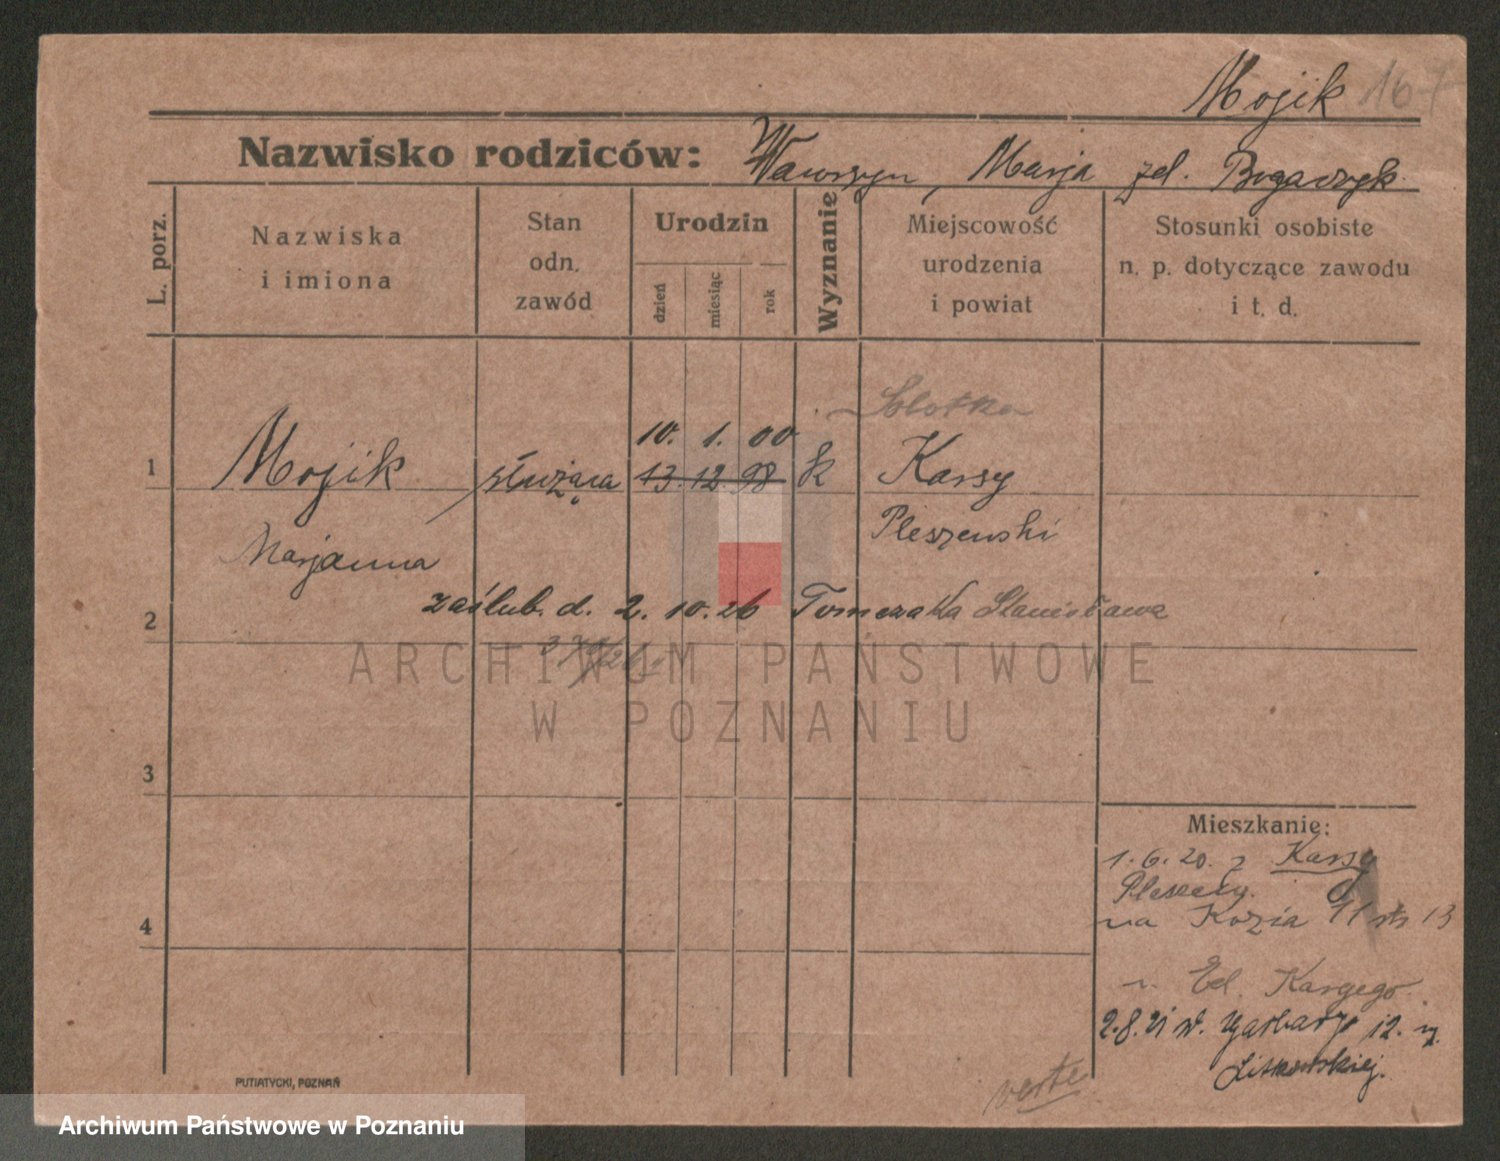 Mojik 167
Nazwisko rodziców: Wawrzyn, Marja zd. Bogaczyk
L. porz.
Nazwiska
i imiona
Stan
odn.
zawód
Urodzin
dzień
miesiąc
rok
Wyznanie
Miejscowość
urodzenia
i powiat
Stosunki osobiste
n. p. dotyczące zawodu
i t. d.
Sobotka
10. 1. 00
1 Mojik służąca 13. 12. 98 k Karsy
Marjanna Pleszewski
2 zaślub. d. 2. 10. 26 Tomczaka Stanisława
ARCHIWUM PAŃSTWOWE
W POZNANIU
3
Mieszkanie:
1.6.20. z Karsy
Pleszewy.
4 na Kozia 11 13
Ed. Kargego
2.8.21 Garbary 12.
verte
PUTIATYCKI, POZNAŃ
Archiwum Państwowe w Poznaniu